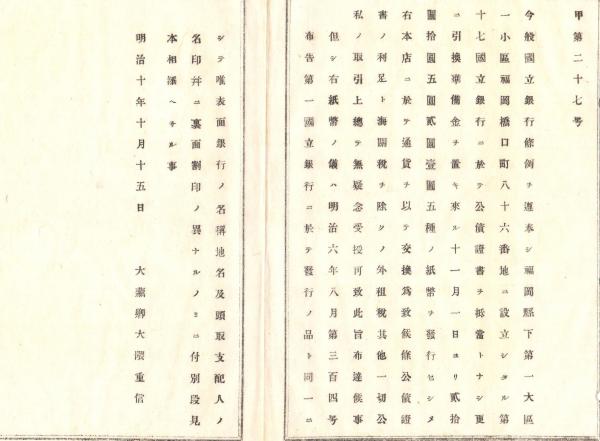 甲第二十七号
今般國立銀行條例ヲ遵奉シ福岡縣下第一大區
一小區福岡橋口町八十六番地ニ設立シタル第
十七國立銀行ニ於テ公債證書ヲ抵當トナシ更
ニ引換凖備金ヲ置キ來ル十一月一日ヨリ貳拾
圓拾圓五圓貳圓壹圓五種ノ紙幣ヲ發行セシメ
右本店ニ於テ通貨ヲ以テ交換爲致候條公債證
書ノ利足ト海關税ヲ除クノ外租税其他一切公
私ノ取引上總テ無疑念受授可致此旨布達候事
但シ右紙幣ノ儀ハ明治六年八月第三百四号
布告第一國立銀行ニ於テ發行ノ品ト同一ニ
シテ唯表面銀行ノ名稱地名及頭取支配人ノ
名印幷ニ裏面割印ノ異ナルノミニ付別段見
本相添ヘサル事
明治十年十月十五日　大藏卿大隈重信